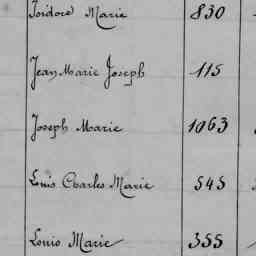 Isidore Marie 830
Jean Marie Joseph 115
Joseph Marie 1063
Louis Charles Marie 545
Louis Marie 355